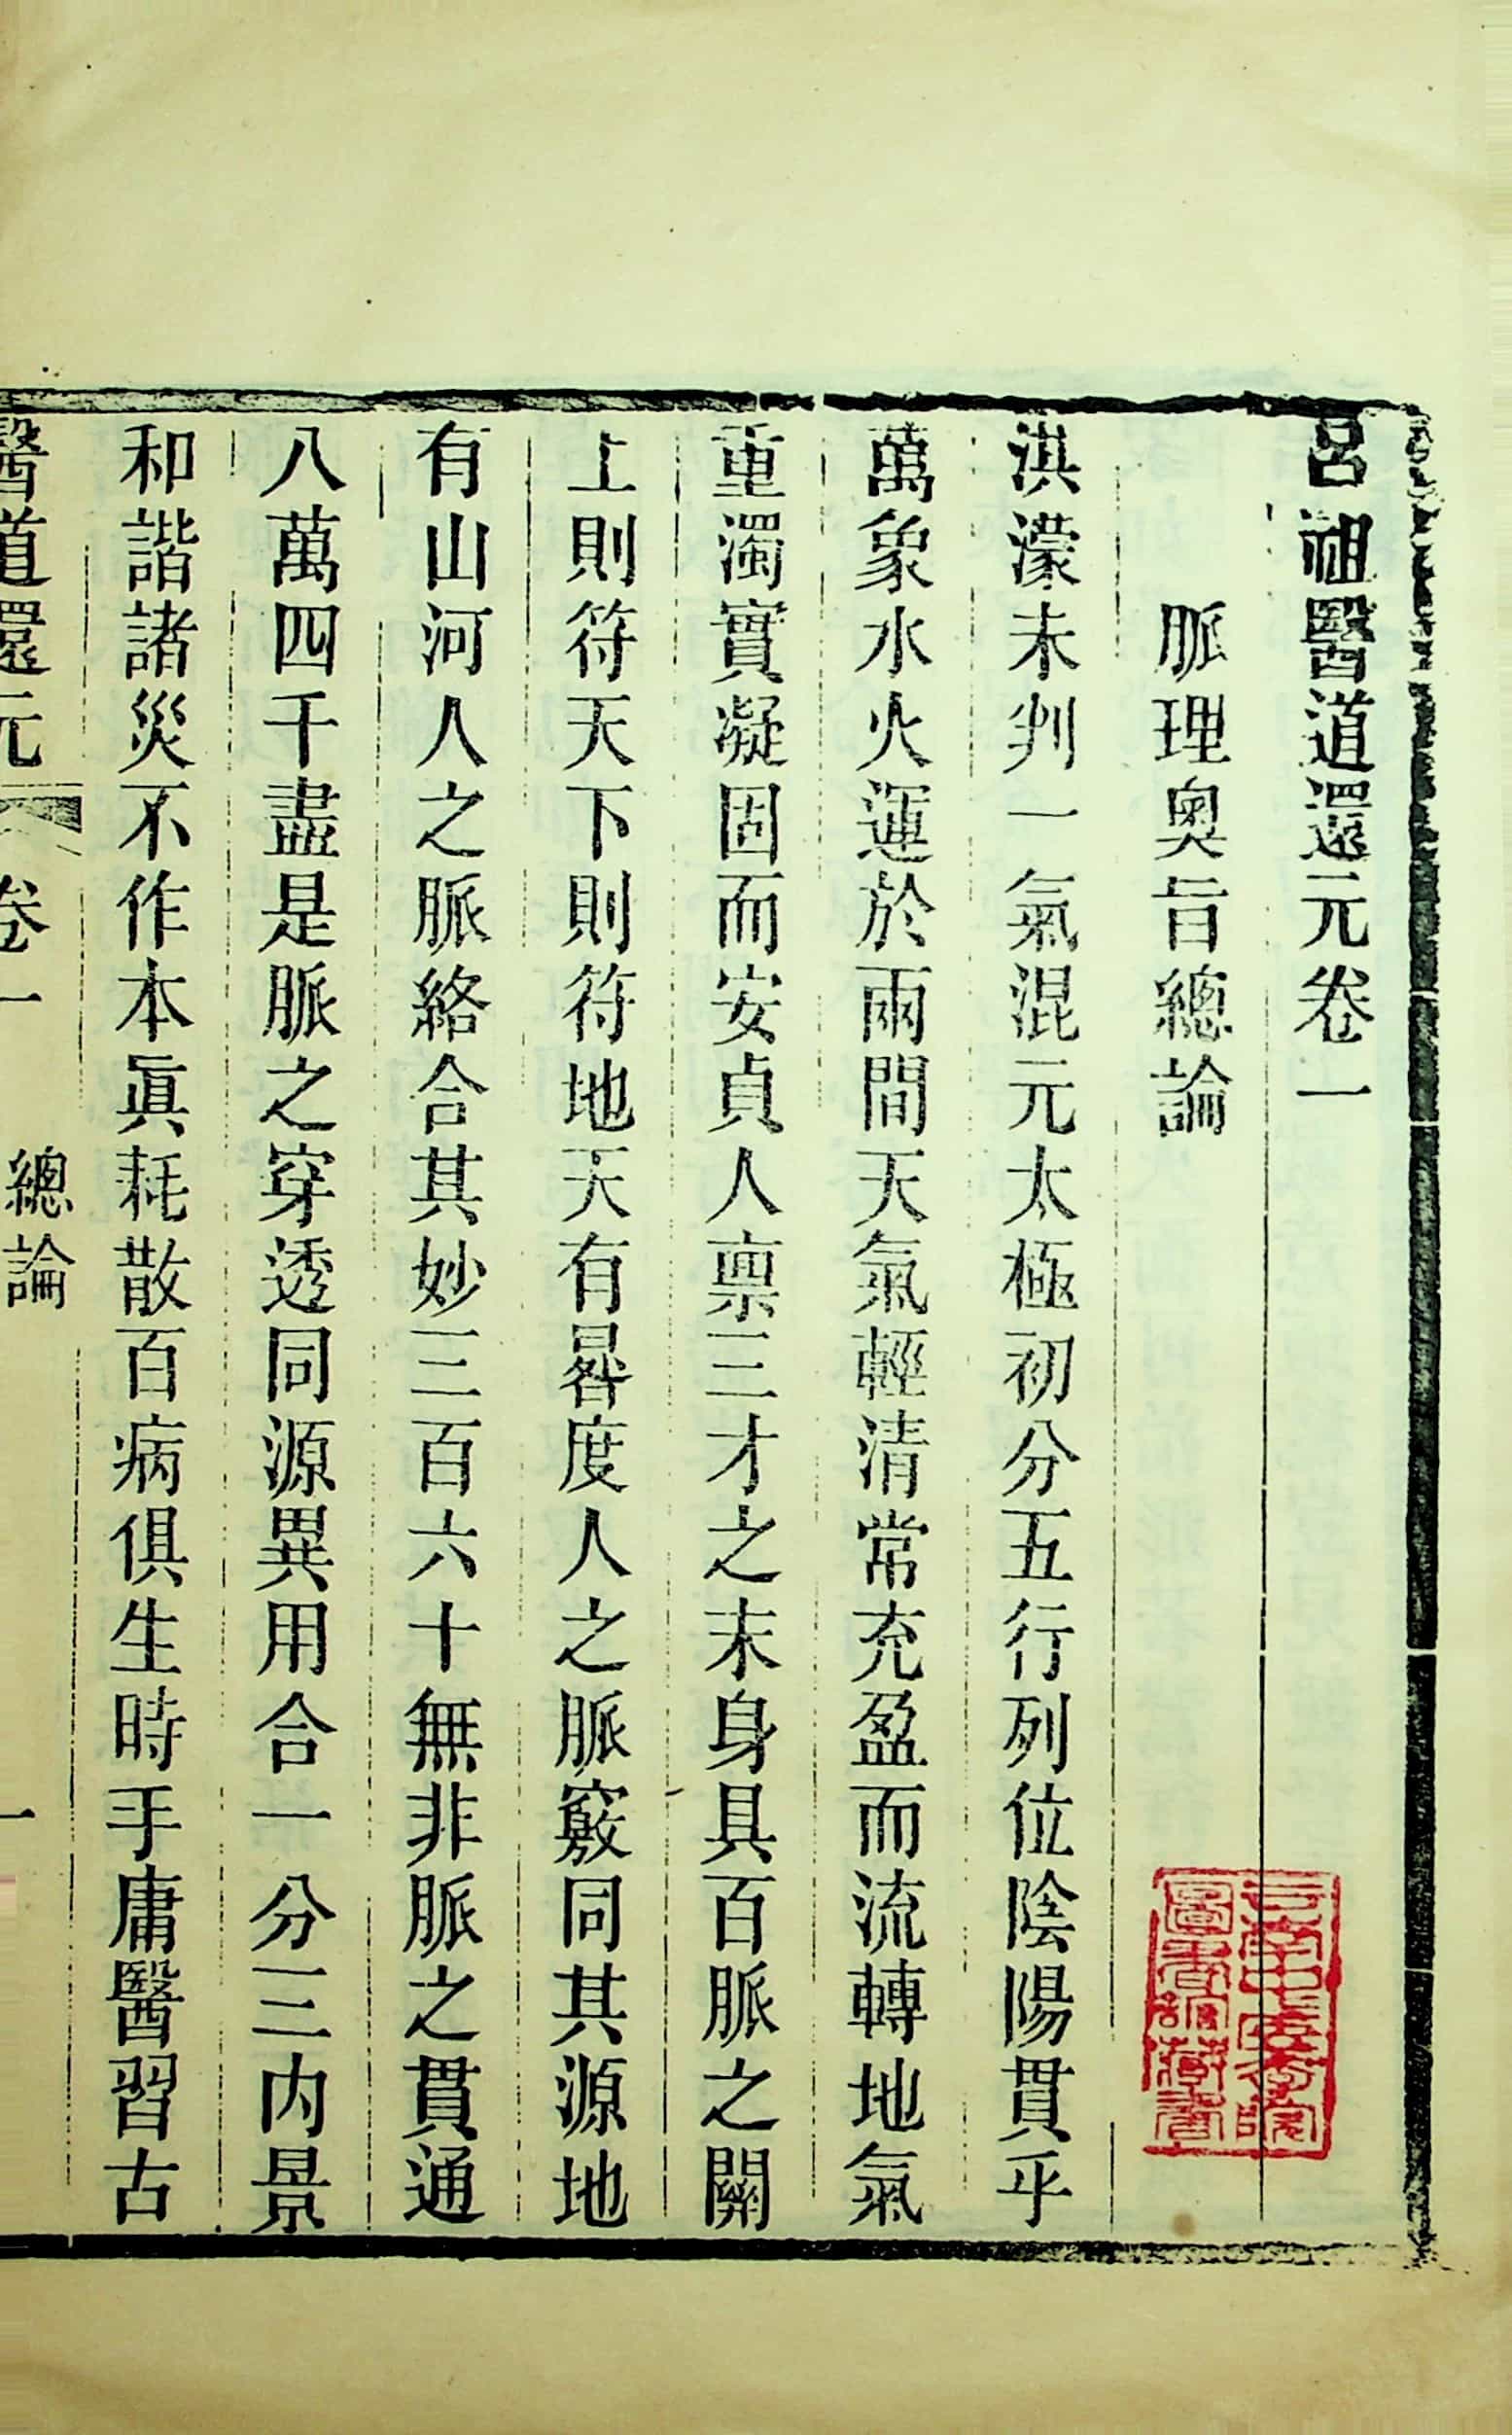 呂祖醫道還元卷一
脈理奧旨總論
淇濛未判一氣混元太極初分五行列位陰陽貫乎
萬象水火運於兩間天氣輕清常充盈而流轉地氣
重濁實凝固而安貞人禀三才之末身具百脈之關
上則符天下則符地天有晷度人之脈竅同其源地
有山河人之脈絡合其妙三百六十無非脈之貫通
八萬四千盡是脈之穿透同源異用合一分三內景
和諧諸災不作本眞耗散百病俱生時手庸醫習古
醫道還元 卷一 總論 一